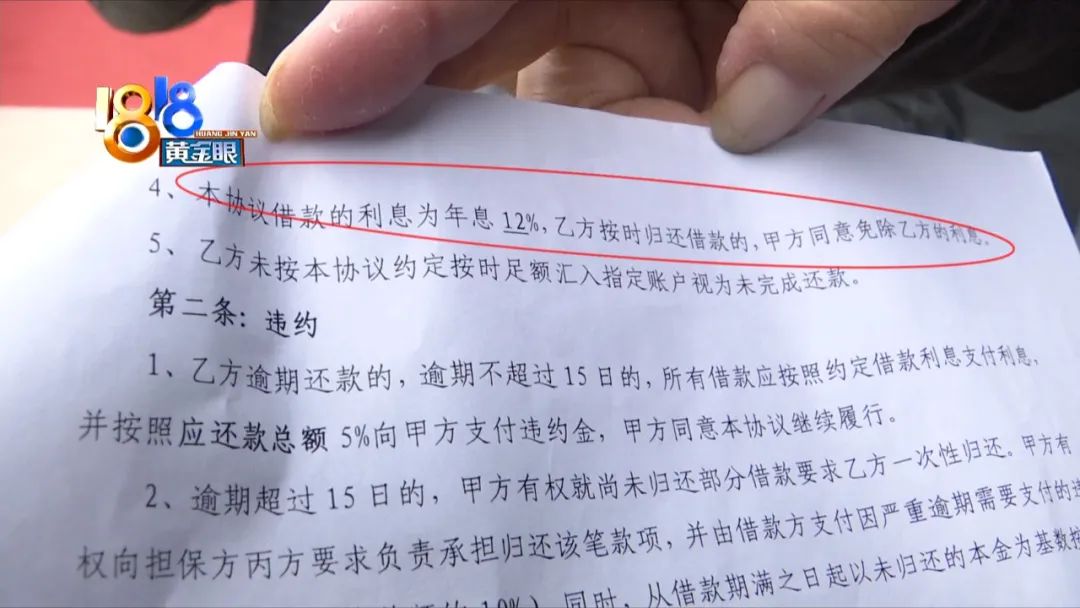 1818
HUANG JIN YAN
黄金眼
4、本协议借款的利息为年息 12%,乙方按时归还借款的,甲方同意免除乙方的利息。
5、乙方未按本协议约定按时足额汇入指定账户视为未完成还款。
第二条：违约
1、乙方逾期还款的,逾期不超过 15 日的,所有借款应按照约定借款利息支付利息,
并按照应还款总额 5%向甲方支付违约金,甲方同意本协议继续履行。
2、逾期超过 15 日的,甲方有权就尚未归还部分借款要求乙方一次性归还。甲方有
权向担保方丙方要求负责承担归还该笔款项,并由借款方支付因严重逾期需要支付的违
的 10%）同时,从借款期满之日起以未归还的本金为基数按